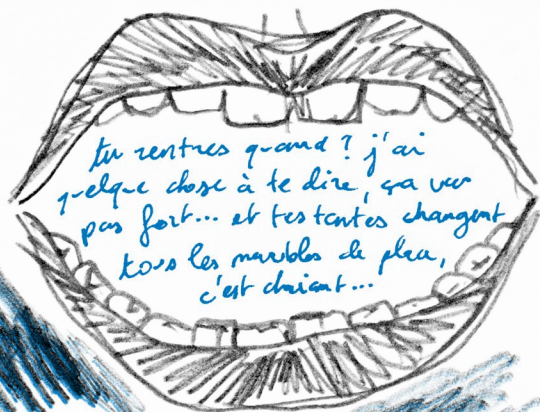 tu rentres quand ? j'ai
quelque chose à te dire, ça va
pas fort... et tes tantes changent
tous les meubles de place,
c'est chiant...